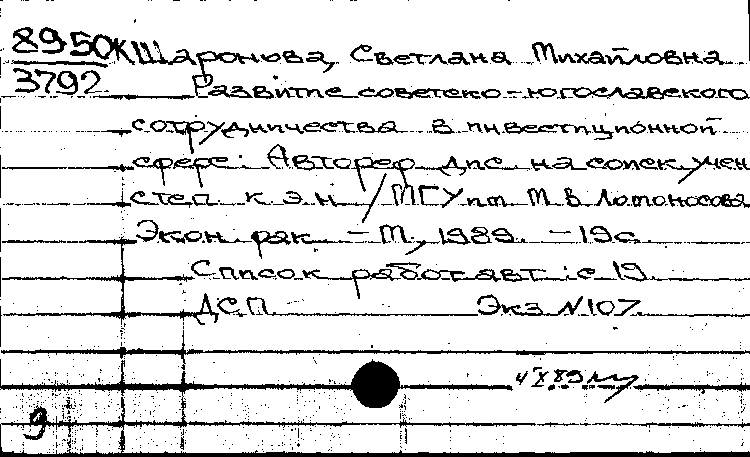 8950К Шаронова, Светлана Михайловна
3792 Развитие советско-югославского
сотрудничества в инвестиционной
сфере: Автореф дис. на соиск. учен
степ. к. э. н. / МГУ им. М. В. Ломоносова
Экон. фак. – М., 1989. – 19 с.
Список работ авт.: с 19.
ДСП. Экз. N 107.
9